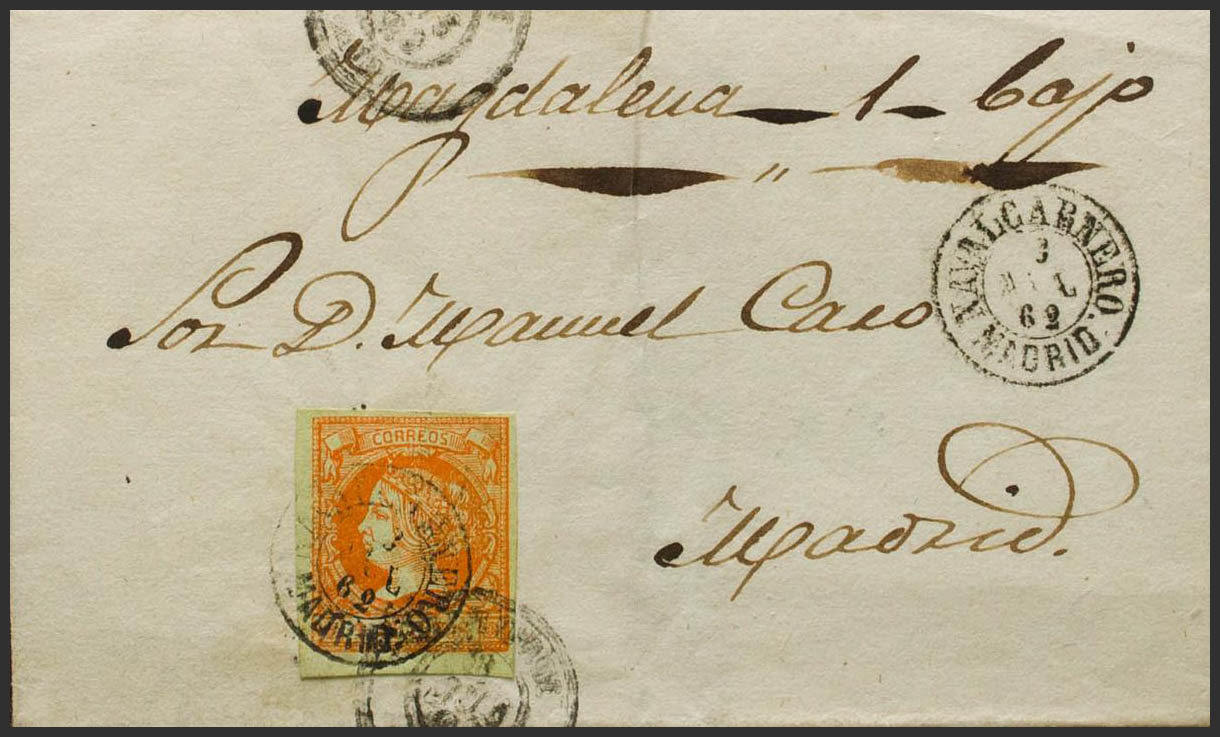 Magdalena 1 bajo
"
Sor D. Manuel Caro
NAVALCARNERO
3
62
MADRID.
CORREOS
Madrid.
62
MADRID